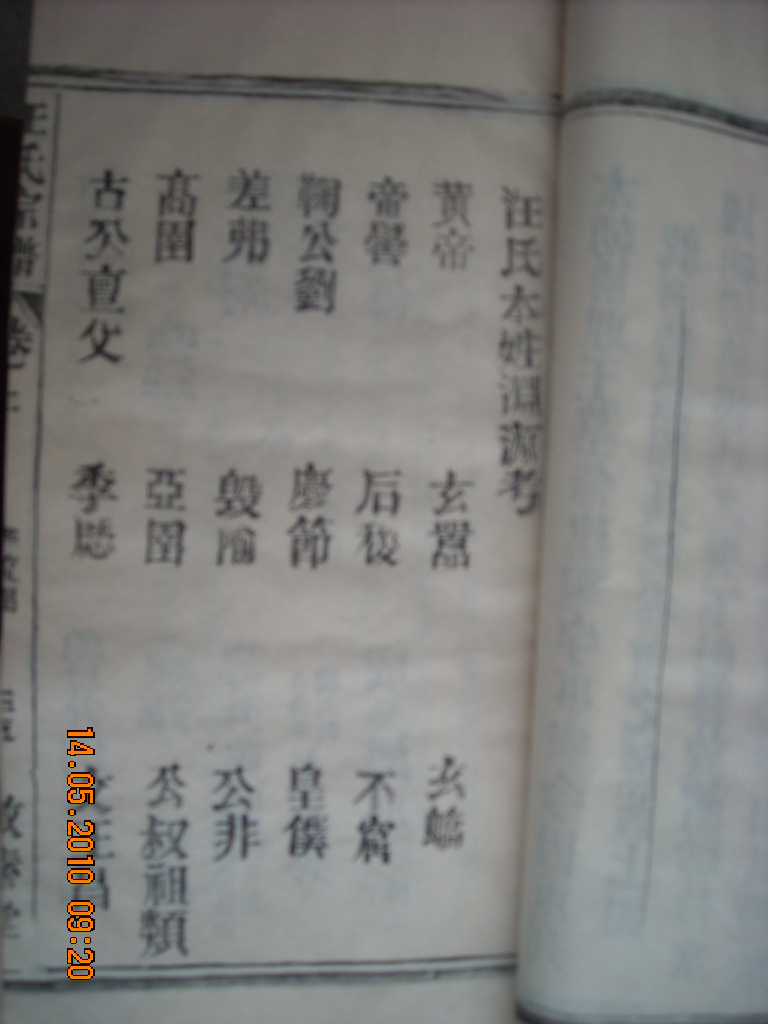 汪氏本姓淵源考
黄帝 玄囂 玄蟜
帝嚳 后稷 不窋
鞠公劉 慶節 皇僕
差弗 毀隃 公非
高圉 亞圉 公叔祖類
古公亶父 季歷 文王昌
汪氏宗譜 卷
14.05.2010 09:20